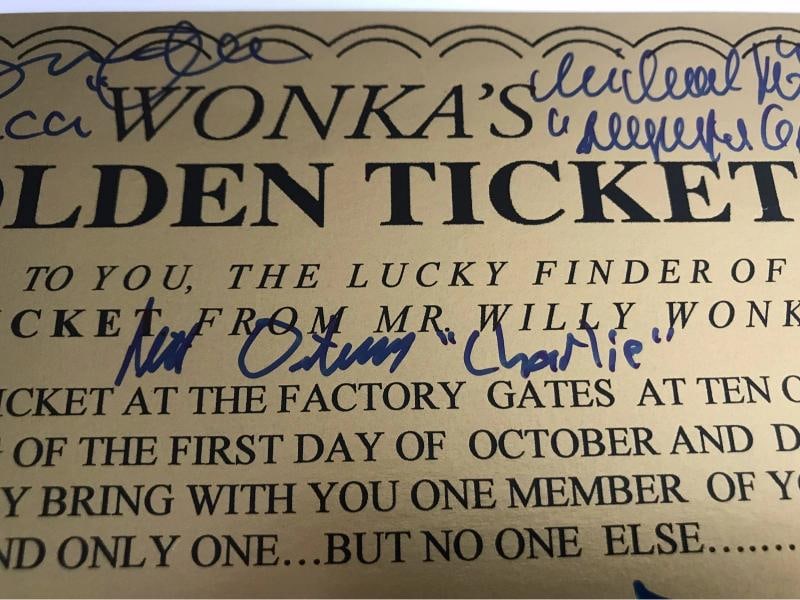 "WONKA'S
OLDEN TICKET
TO YOU, THE LUCKY FINDER OF
CKET FROM MR. WILLY WONK
"Charlie"
ICKET AT THE FACTORY GATES AT TEN O
G OF THE FIRST DAY OF OCTOBER AND D
Y BRING WITH YOU ONE MEMBER OF YO
ND ONLY ONE...BUT NO ONE ELSE.......